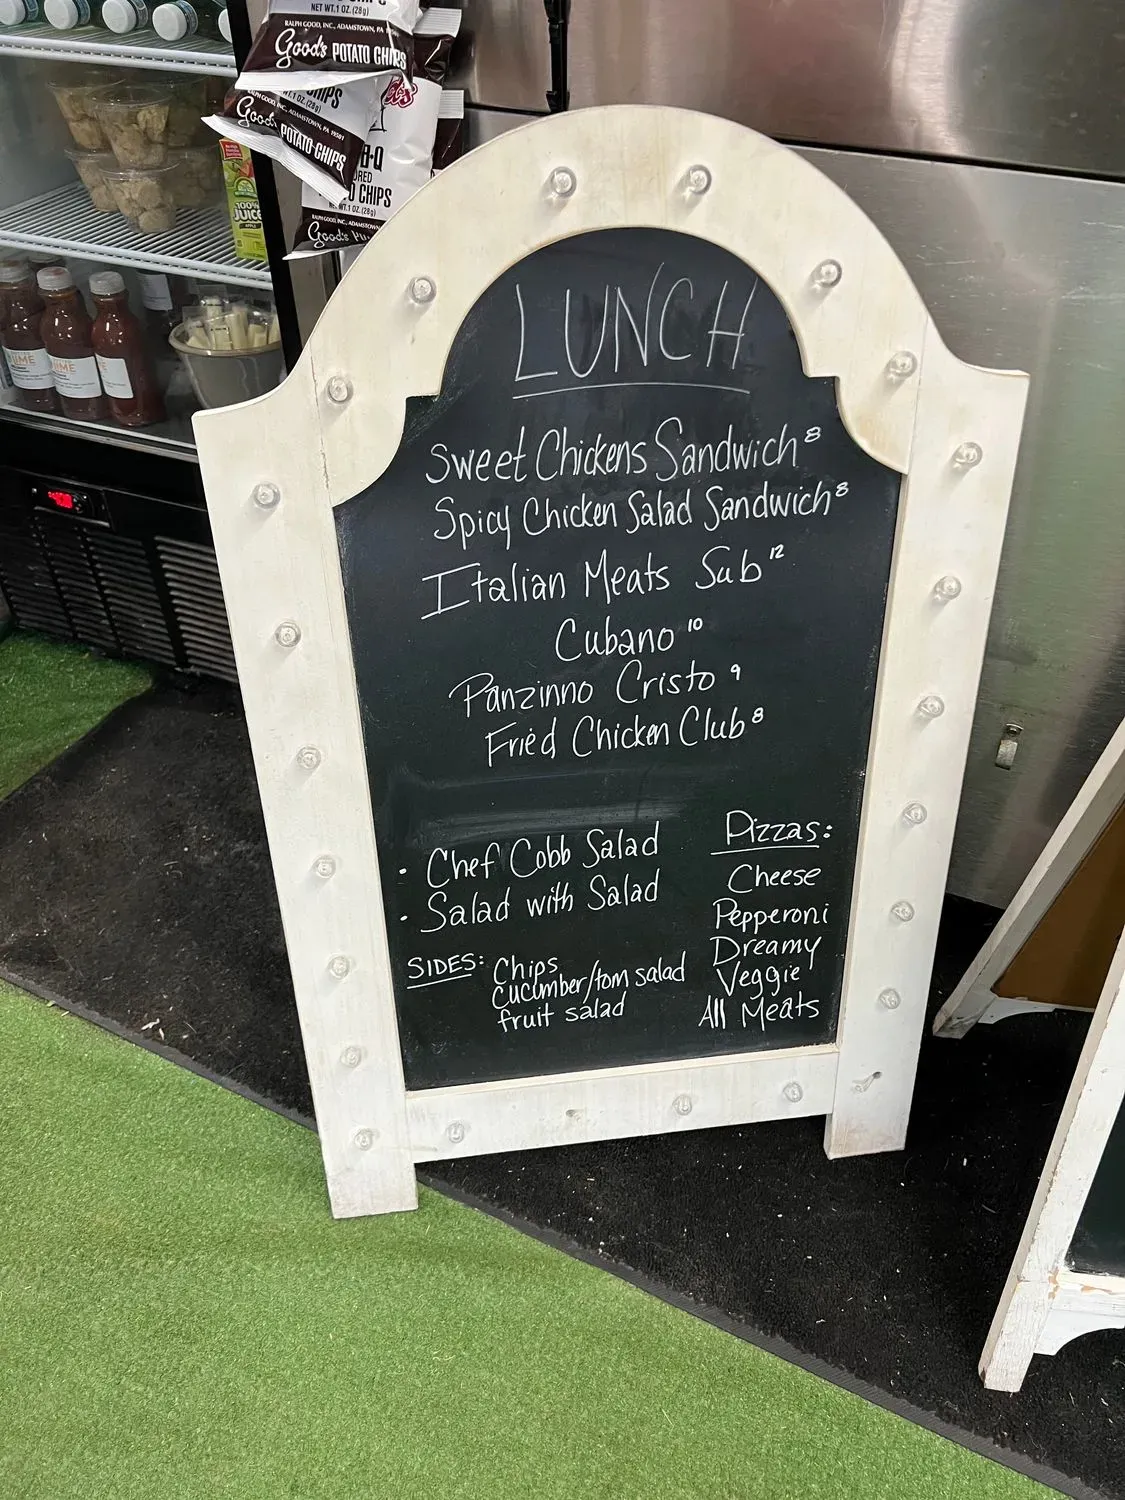 NET WT. 1 OZ. (28g)
RALPH GOOD, INC., ADAMSTOWN, PA
Good's POTATO CHIPS
CHIPS
POTATO CHIPS
CHIPS
NET WT. 1 OZ. (28g)
Good's
100%
JUICE
APPLE
LUNCH
Sweet Chickens Sandwich 8
Spicy Chicken Salad Sandwich 8
Italian Meats Sub 12
Cubano 10
Panzinno Cristo 9
Fried Chicken Club 8
• Chef Cobb Salad
• Salad with Salad
SIDES: Chips
cucumber/tom salad
fruit salad
Pizzas:
Cheese
Pepperoni
Dreamy
Veggie
All Meats